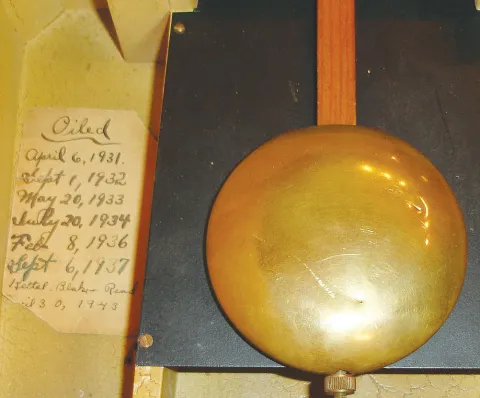 Oiled
April 6, 1931.
Sept 1, 1932
May 20, 1933
July 20, 1934
Feb 8, 1936
Sept 6, 1937
30, 1943